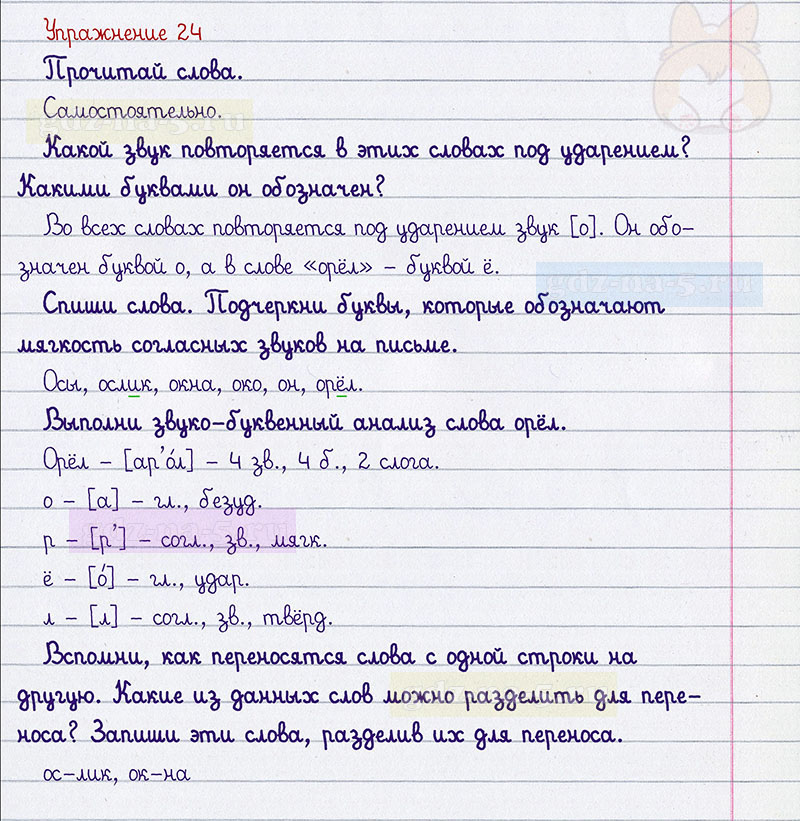 Упражнение 24
Прочитай слова.
Самостоятельно.
Какой звук повторяется в этих словах под ударением?
Какими буквами он обозначен?
Во всех словах повторяется под ударением звук [о]. Он обо-
значен буквой о, а в слове «орёл» – буквой ё.
Спиши слова. Подчеркни буквы, которые обозначают
мягкость согласных звуков на письме.
Осы, ослик, окна, око, он, орёл.
Выполни звуко-буквенный анализ слова орёл.
Орёл – [ар’о́л] – 4 зв., 4 б., 2 слога.
о – [а] – гл., безуд.
р – [р’] – согл., зв., мягк.
ё – [о́] – гл., удар.
л – [л] – согл., зв., твёрд.
Вспомни, как переносятся слова с одной строки на
другую. Какие из данных слов можно разделить для пере-
носа? Запиши эти слова, разделив их для переноса.
ос-лик, ок-на